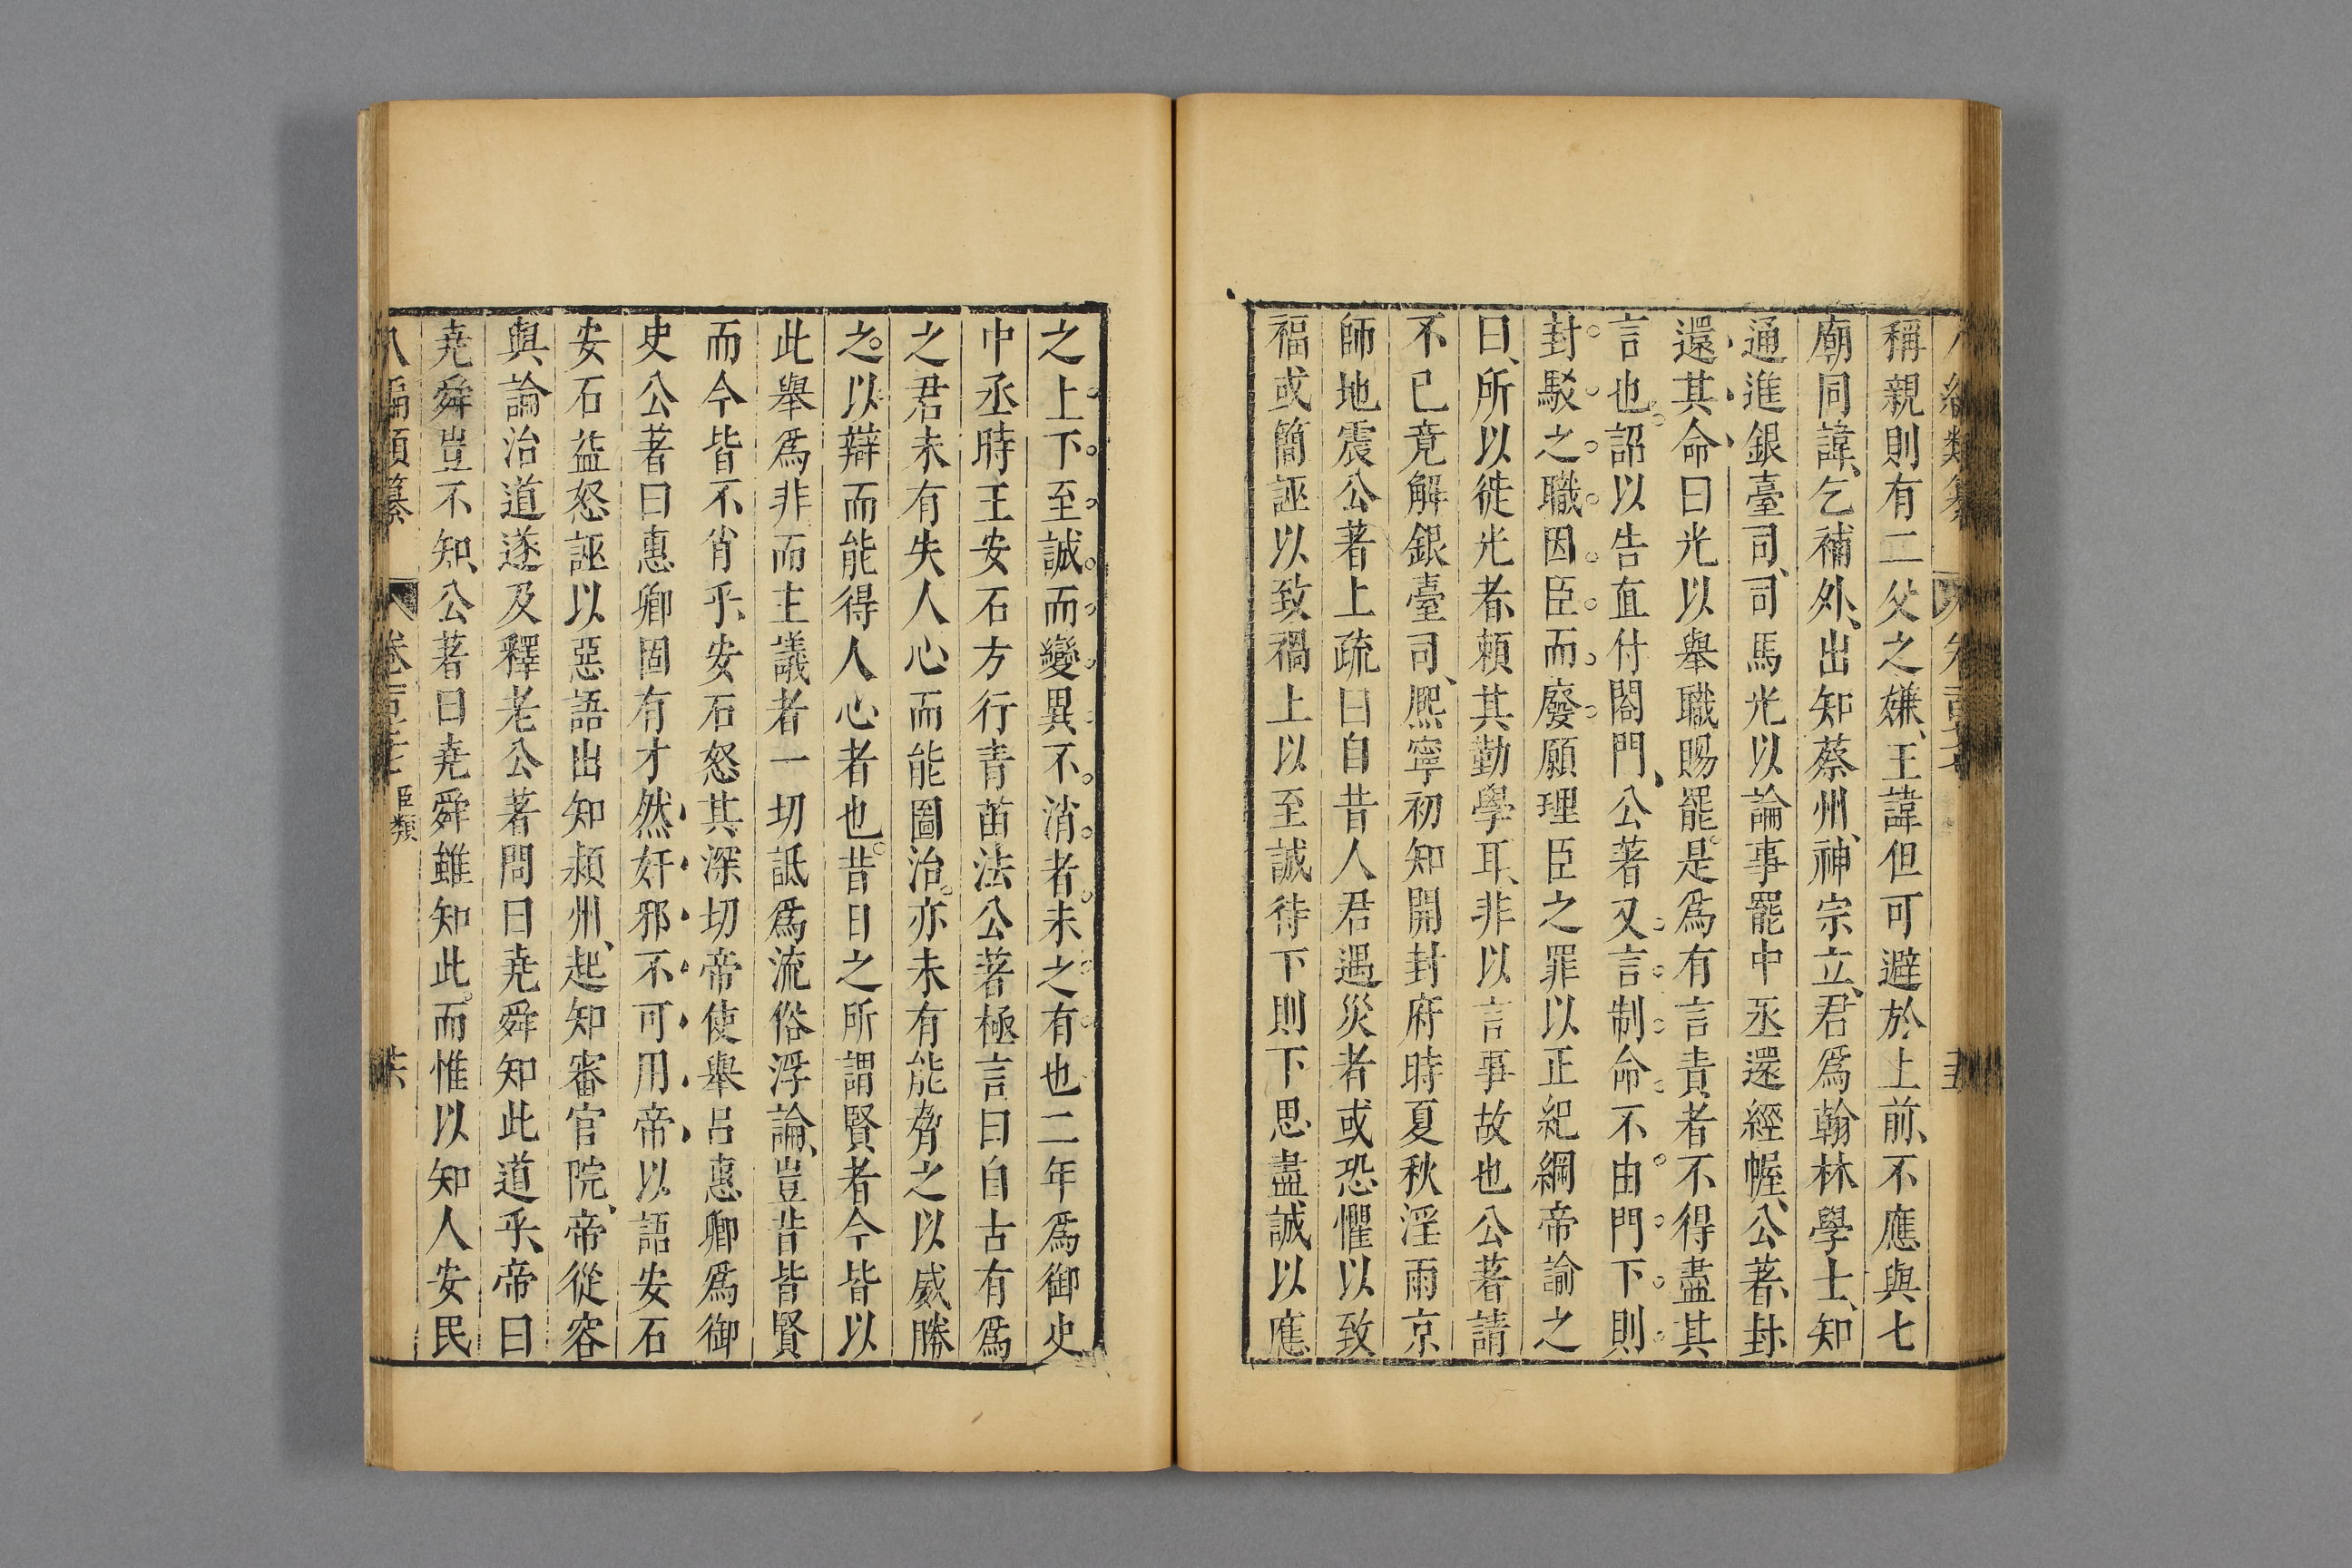 稱親則有二父之嫌王諱但可避於上前不應與七
廟同諱乞補外出知蔡州神宗立君爲翰林學士知
通進銀臺司司馬光以論事罷中丞還經幄公著封
還其命曰光以舉職賜罷是爲有言責者不得盡其
言也詔以告直付閤門公著又言制命不由門下則
封駁之職因臣而廢願理臣之罪以正紀綱帝諭之
曰所以徙光者賴其勤學耳非以言事故也公著請
不已竟解銀臺司熈寧初知開封府時夏秋淫雨京
師地震公著上疏曰自昔人君遇災者或恐懼以致
福或簡誣以致禍上以至誠待下則下思盡誠以應
之上下至誠而變異不消者未之有也二年爲御史
中丞時王安石方行青苗法公著極言曰自古有爲
之君未有失人心而能圖治亦未有能脅之以威勝
之以辯而能得人心者也昔日之所謂賢者今皆以
此舉爲非而主議者一切詆爲流俗浮論豈昔皆賢
而今皆不肖乎安石怒其深切帝使舉呂惠卿爲御
史公著曰惠卿固有才然奸邪不可用帝以語安石
安石益怒誣以惡語出知潁州起知審官院帝從容
與論治道遂及釋老公著問曰堯舜知此道乎帝曰
堯舜豈不知公著曰堯舜雖知此而惟以知人安民
八編類纂 卷百 臣類